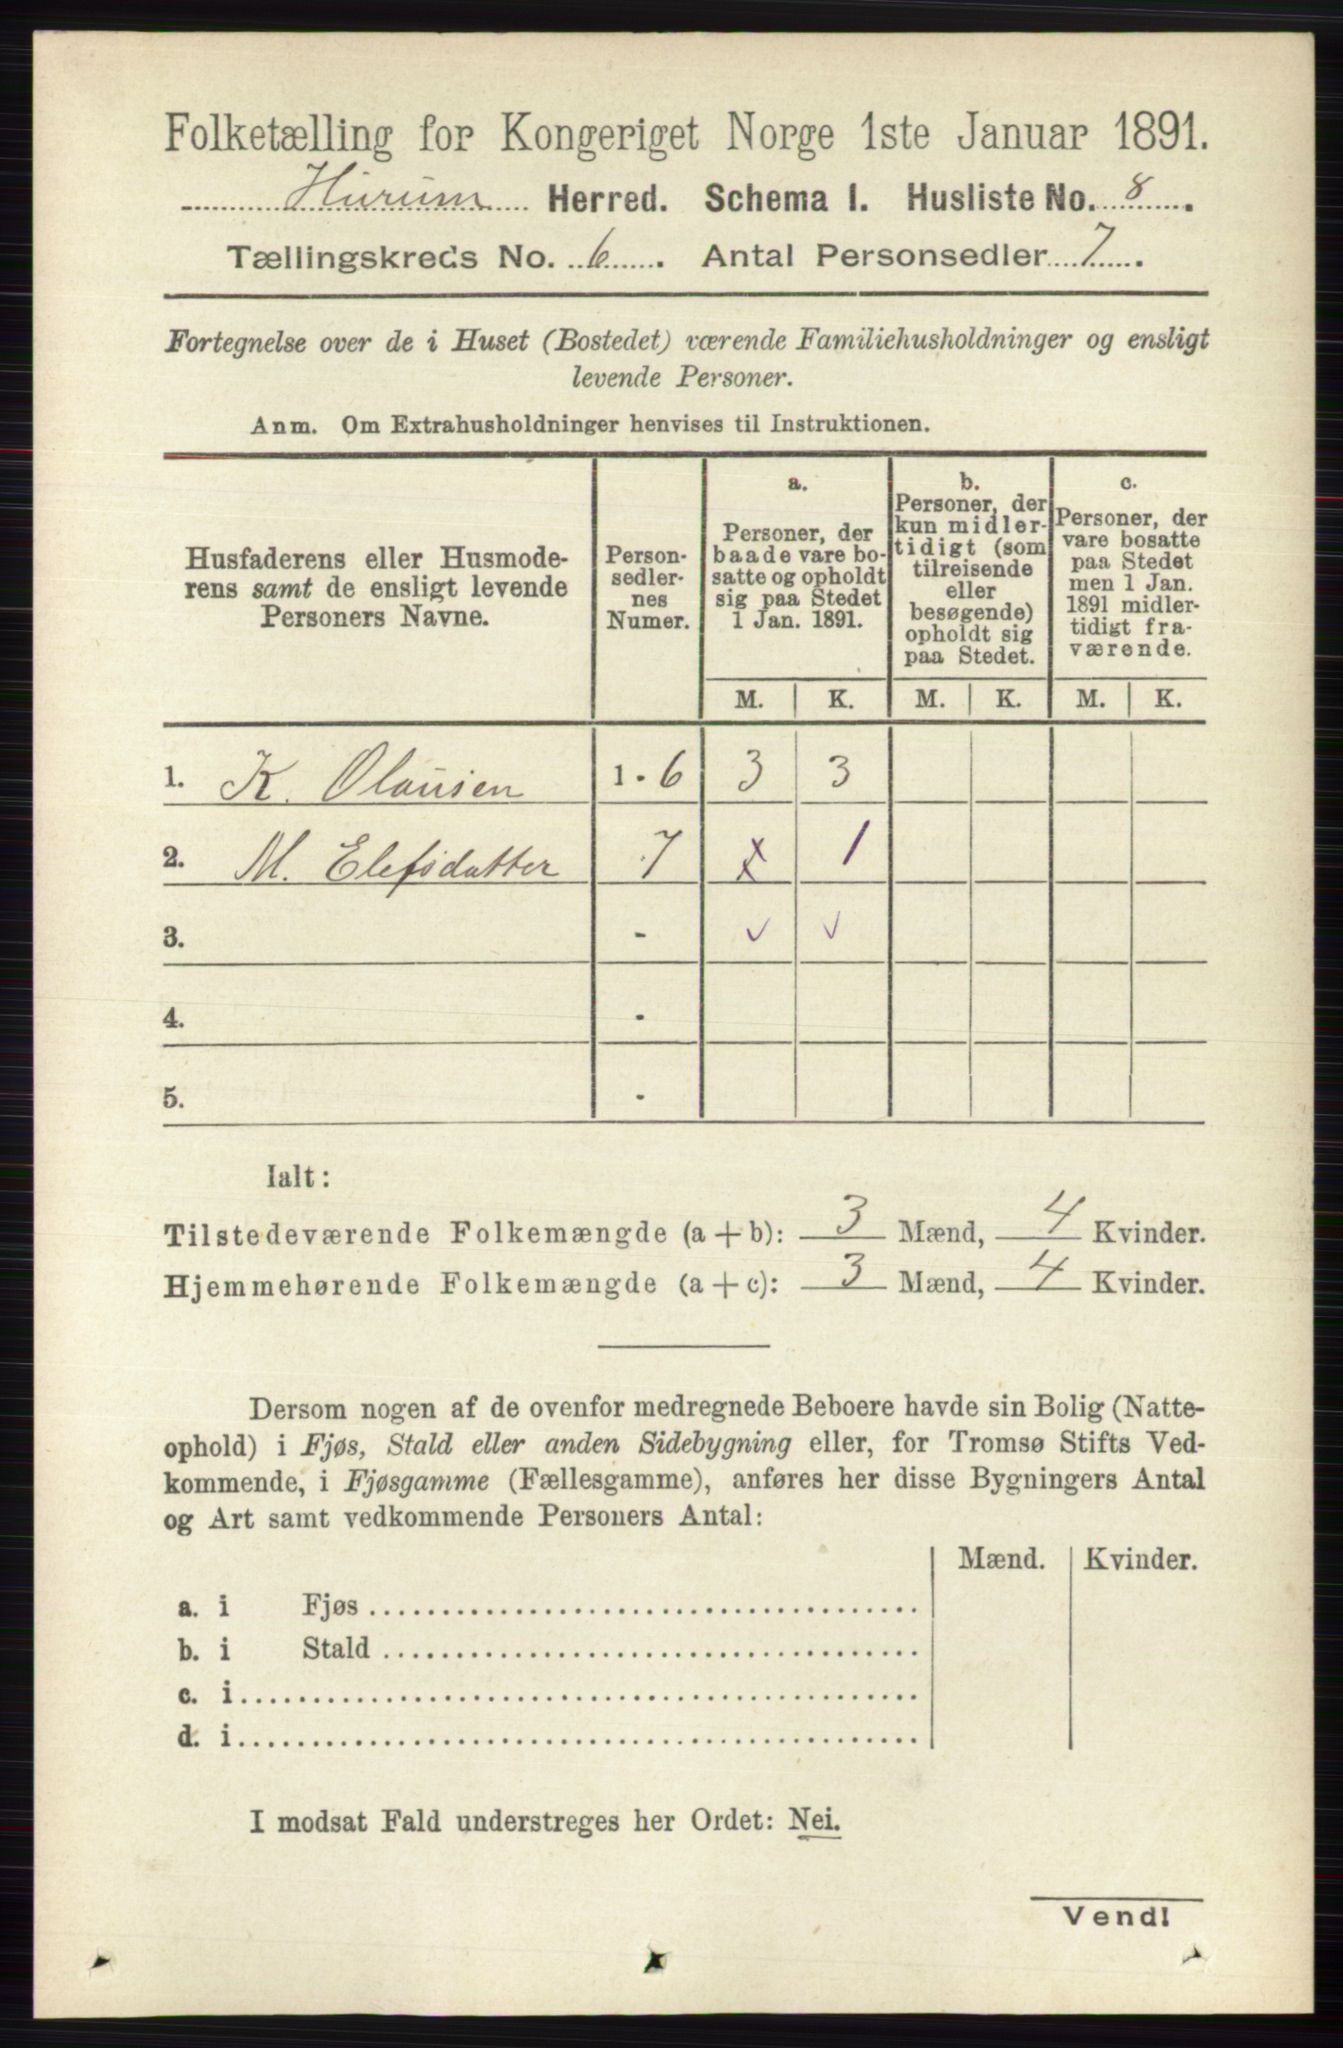 Folketælling for Kongeriget Norge 1ste Januar 1891.
Hurum Herred. Schema I. Husliste No. 8.
Tællingskreds No. 6. Antal Personsedler 7.
Fortegnelse over de i Huset (Bostedet) værende Familiehusholdninger og ensligt
levende Personer.
Anm. Om Extrahusholdninger henvises til Instruktionen.
Husfaderens eller Husmode-
rens samt de ensligt levende
Personers Navne.
Person-
sedler-
nes
Numer.
a.
Personer, der
baade vare bo-
satte og opholdt
sig paa Stedet
1 Jan. 1891.
b.
Personer, der
kun midler-
tidigt (som
tilreisende
eller
besøgende)
opholdt sig
paa Stedet.
c.
Personer, der
vare bosatte
paa Stedet
men 1 Jan.
1891 midler-
tidigt fra-
værende.
M. K. M. K. M. K.
1. K. Olausen 1 - 6 3 3
2. M. Elefsdatter 7 x 1
3. - ✓ ✓
4. -
5. -
Ialt:
Tilstedeværende Folkemængde (a + b): 3 Mænd, 4 Kvinder.
Hjemmehørende Folkemængde (a + c): 3 Mænd, 4 Kvinder.
Dersom nogen af de ovenfor medregnede Beboere havde sin Bolig (Natte-
ophold) i Fjøs, Stald eller anden Sidebygning eller, for Tromsø Stifts Ved-
kommende, i Fjøsgamme (Fællesgamme), anføres her disse Bygningers Antal
og Art samt vedkommende Personers Antal:
Mænd. Kvinder.
a. i Fjøs
b. i Stald
c. i
d. i
I modsat Fald understreges her Ordet: Nei.
Vend!